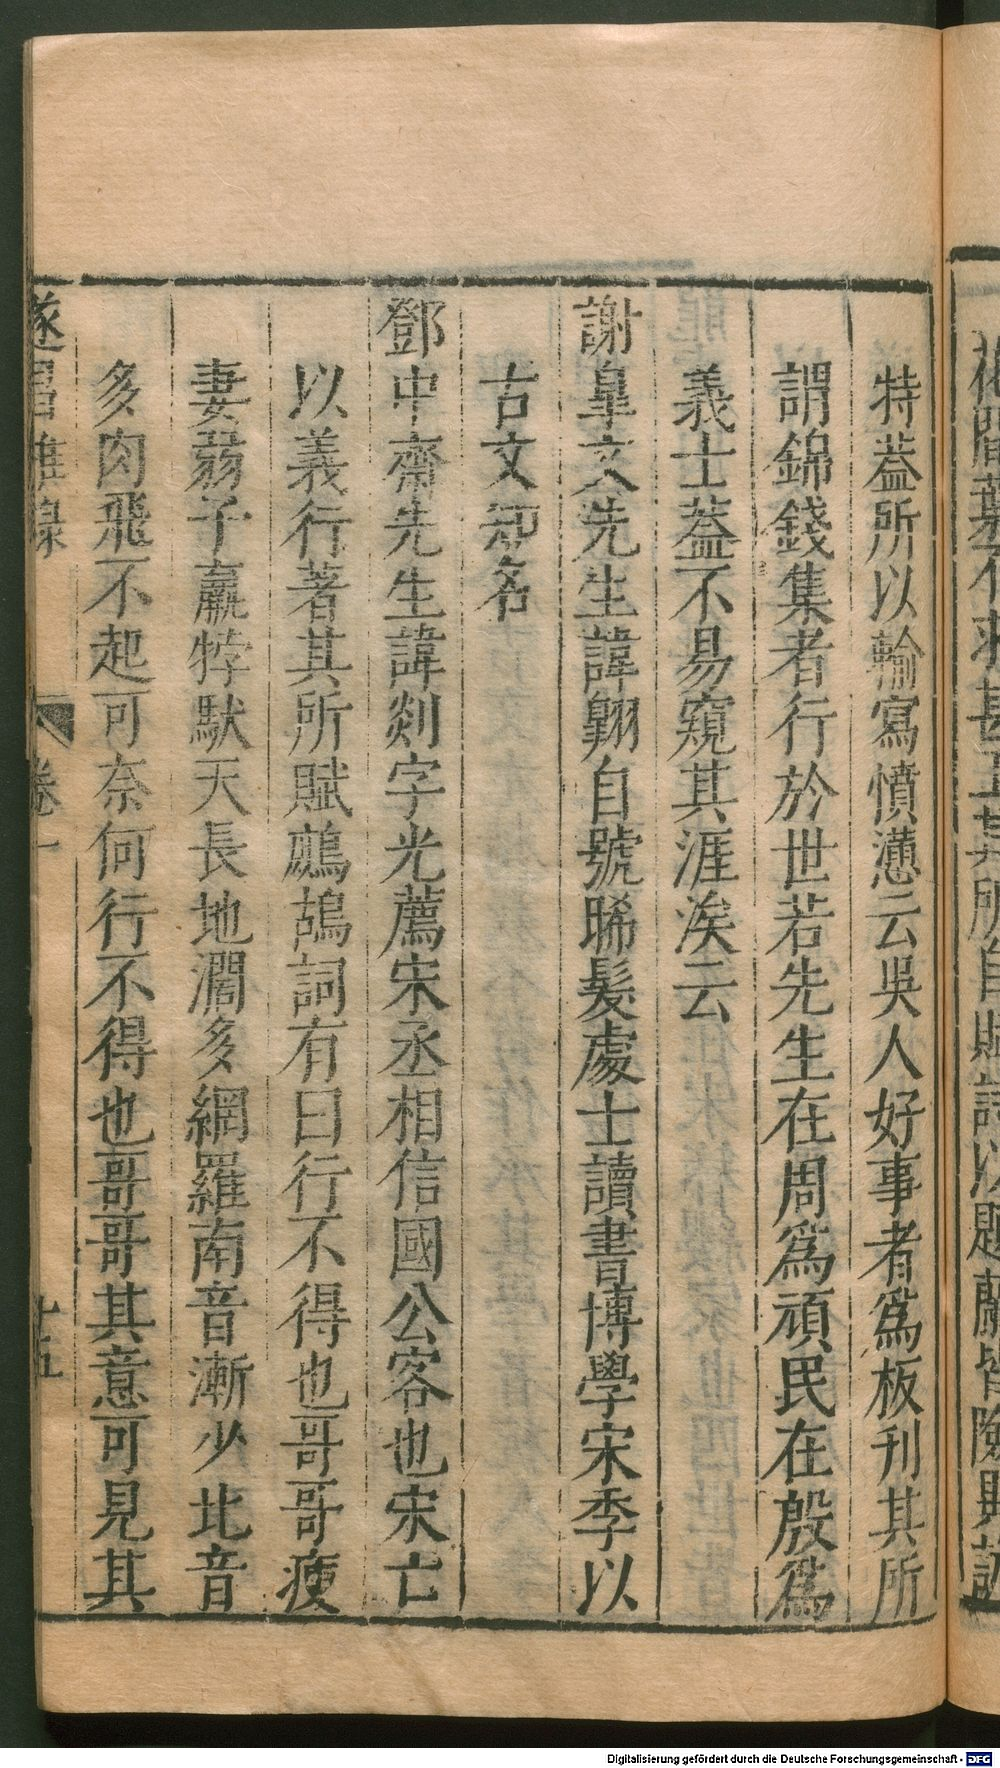 特葢所以輸寫憤懣云吳人好事者爲板刊其所
謂錦錢集者行於世若先生在周爲頑民在殷爲
義士葢不易窺其涯涘云
謝皐文先生諱翶自號晞髮處士讀書博學宋季以
古文知名
鄧中齋先生諱剡字光薦宋丞相信國公客也宋亡
以義行著其所賦鷓鴣詞有曰行不得也哥哥瘦
妻弱子羸牸馱天長地濶多網羅南音漸少北音
多肉飛不起可奈何行不得也哥哥其意可見其
遂昌雜錄 卷一 十五
Digitalisierung gefördert durch die Deutsche Forschungsgemeinschaft - DFG